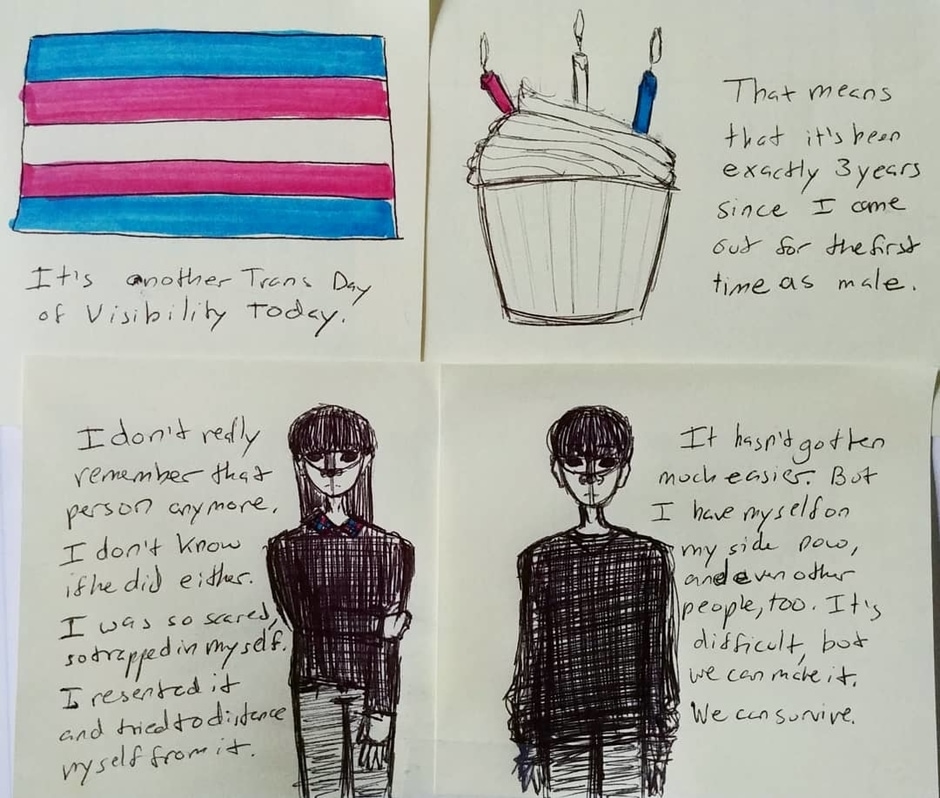 It's another Trans Day
of Visibility Today.
That means
that it's been
exactly 3 years
since I came
out for the first
time as male.
I don't really
remember that
person anymore.
I don't know
if he did either.
I was so scared,
so trapped in myself.
I resented it
and tried to distance
myself from it.
It hasn't gotten
much easier. But
I have myself on
my side now,
and even other
people, too. It's
difficult, but
we can make it.
We can survive.